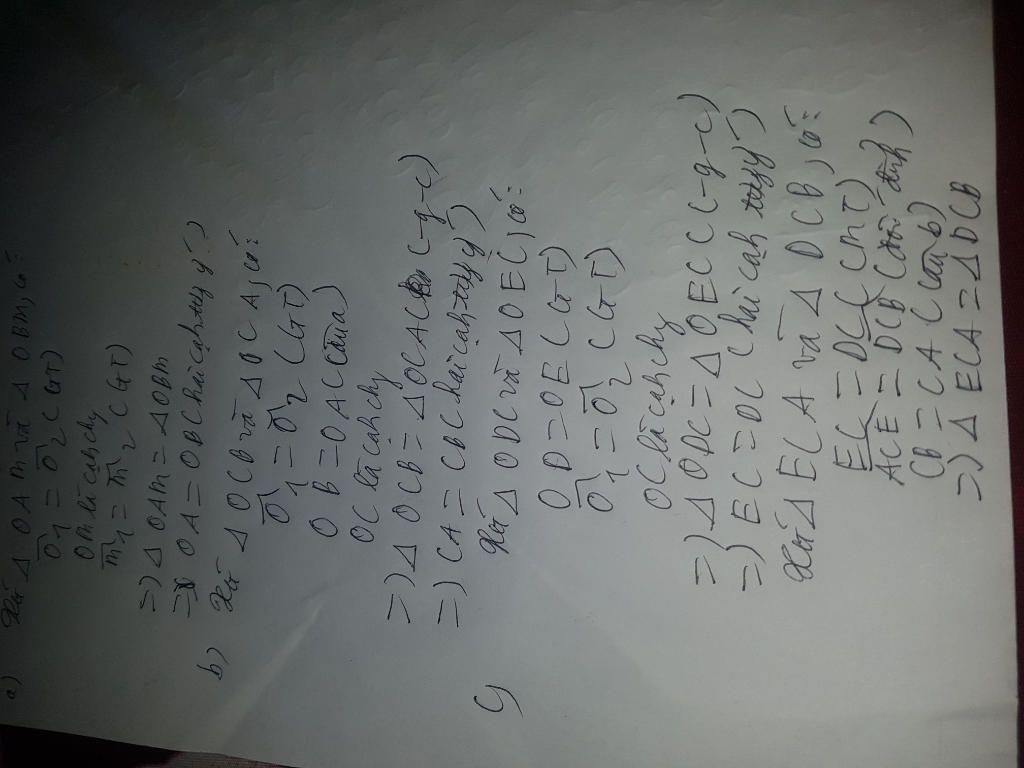 a) Xét Δ OAM và Δ OBM, có:
Ô1 = Ô2 (GT)
OM là cạh chg
M̂1 = M̂2 (GT)
=) Δ OAM = ΔOBM
=) OA = OB (hai cạh tug ý)
b) Xét Δ OCB và Δ OCA, có:
Ô1 = Ô2 (GT)
OB = OA (câu a)
OC là cạh chg
=) Δ OCB = Δ OCA (c-g-c)
=) CA = CB (hai cạh tug ý)
c) Xét Δ ODC và Δ OEC, có:
OD = OE (GT)
Ô1 = Ô2 (GT)
OC là cạh chg
=) Δ ODC = Δ OEC (c-g-c)
=) EC = DC (hai cạh tug ý)
Xét Δ ECA và Δ DCB, có:
EC = DC (CMT)
ACE = DCB (đối đỉh)
CB = CA (câu b)
=) Δ ECA = Δ DCB